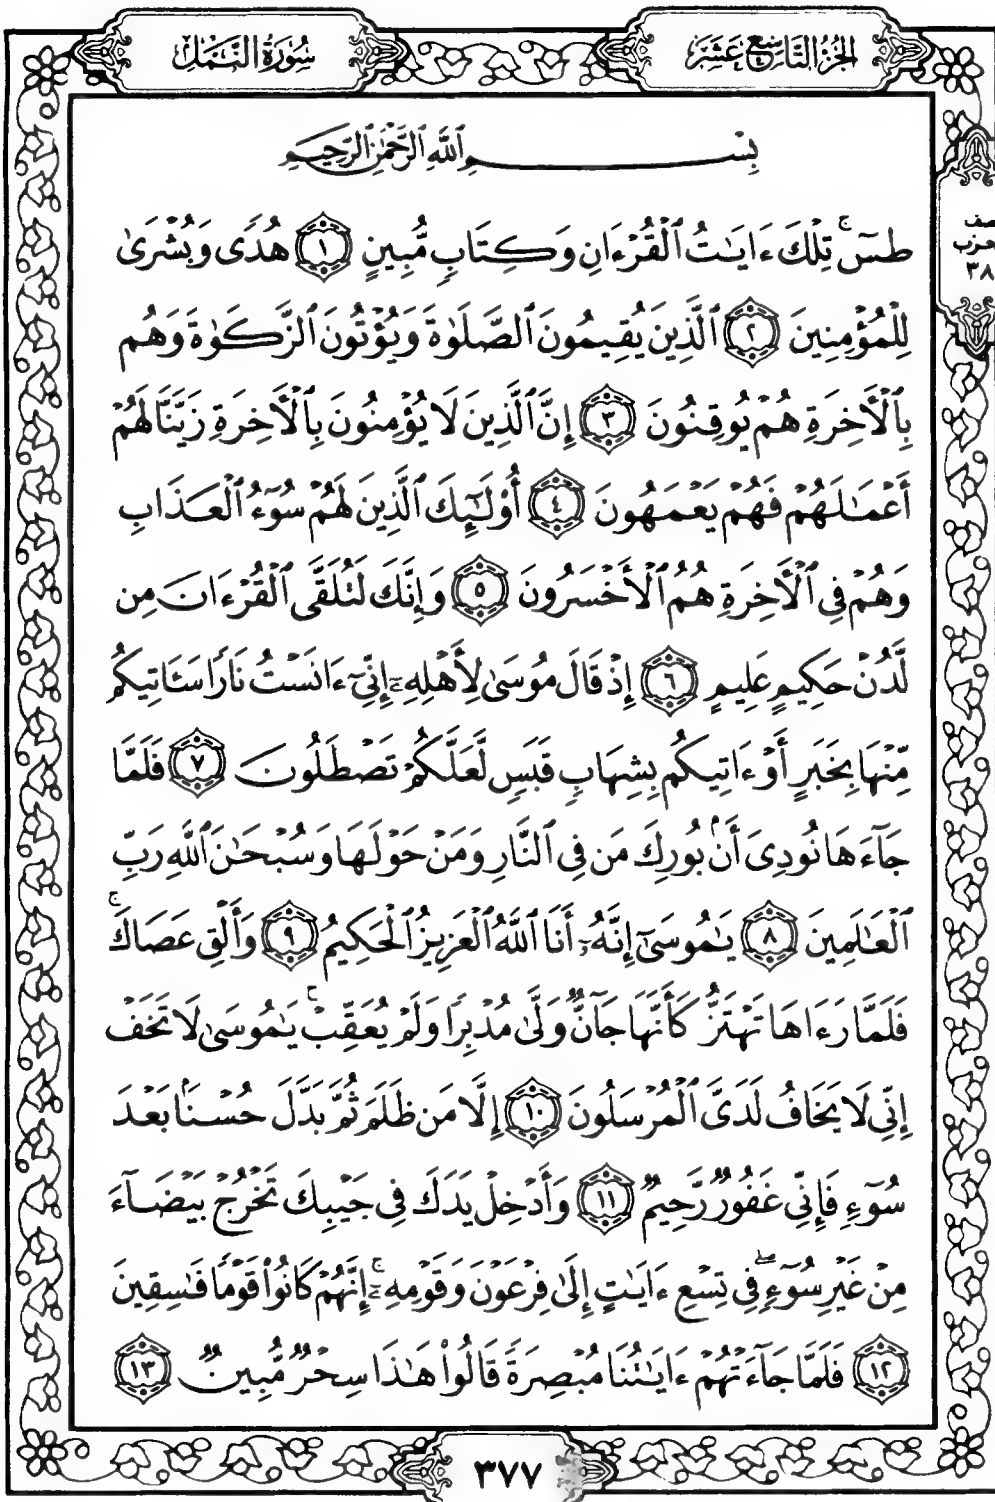 الجزء التاسع عشر
سورة النمل
بِسْمِ ٱللَّهِ ٱلرَّحْمَٰنِ ٱلرَّحِيمِ
طسٓ ۚ تِلْكَ ءَايَٰتُ ٱلْقُرْءَانِ وَكِتَابٍ مُّبِينٍ ١ هُدًى وَبُشْرَىٰ
لِلْمُؤْمِنِينَ ٢ ٱلَّذِينَ يُقِيمُونَ ٱلصَّلَوٰةَ وَيُؤْتُونَ ٱلزَّكَوٰةَ وَهُم
بِٱلْأَخِرَةِ هُمْ يُوقِنُونَ ٣ إِنَّ ٱلَّذِينَ لَا يُؤْمِنُونَ بِٱلْأَخِرَةِ زَيَّنَّا لَهُمْ
أَعْمَٰلَهُمْ فَهُمْ يَعْمَهُونَ ٤ أُوْلَٰٓئِكَ ٱلَّذِينَ لَهُمْ سُوٓءُ ٱلْعَذَابِ
وَهُمْ فِى ٱلْأَخِرَةِ هُمُ ٱلْأَخْسَرُونَ ٥ وَإِنَّكَ لَتُلَقَّى ٱلْقُرْءَانَ مِن
لَّدُنْ حَكِيمٍ عَلِيمٍ ٦ إِذْ قَالَ مُوسَىٰ لِأَهْلِهِۦٓ إِنِّىٓ ءَانَسْتُ نَارًا سَـَٔاتِيكُم
مِّنْهَا بِخَبَرٍ أَوْ ءَاتِيكُم بِشِهَابٍ قَبَسٍ لَّعَلَّكُمْ تَصْطَلُونَ ٧ فَلَمَّا
جَآءَهَا نُودِىَ أَنۢ بُورِكَ مَن فِى ٱلنَّارِ وَمَنْ حَوْلَهَا وَسُبْحَٰنَ ٱللَّهِ رَبِّ
ٱلْعَٰلَمِينَ ٨ يَٰمُوسَىٰٓ إِنَّهُۥٓ أَنَا ٱللَّهُ ٱلْعَزِيزُ ٱلْحَكِيمُ ٩ وَأَلْقِ عَصَاكَ ۚ
فَلَمَّا رَءَاهَا تَهْتَزُّ كَأَنَّهَا جَآنٌّ وَلَّىٰ مُدْبِرًا وَلَمْ يُعَقِّبْ ۚ يَٰمُوسَىٰ لَا تَخَفْ
إِنِّى لَا يَخَافُ لَدَىَّ ٱلْمُرْسَلُونَ ١٠ إِلَّا مَن ظَلَمَ ثُمَّ بَدَّلَ حُسْنًۢا بَعْدَ
سُوٓءٍ فَإِنِّى غَفُورٌ رَّحِيمٌ ١١ وَأَدْخِلْ يَدَكَ فِى جَيْبِكَ تَخْرُجْ بَيْضَآءَ
مِنْ غَيْرِ سُوٓءٍ ۖ فِى تِسْعِ ءَايَٰتٍ إِلَىٰ فِرْعَوْنَ وَقَوْمِهِۦٓ ۚ إِنَّهُمْ كَانُوا۟ قَوْمًا فَٰسِقِينَ
١٢ فَلَمَّا جَآءَتْهُمْ ءَايَٰتُنَا مُبْصِرَةً قَالُوا۟ هَٰذَا سِحْرٌ مُّبِينٌ ١٣
٣٨
٣٧٧